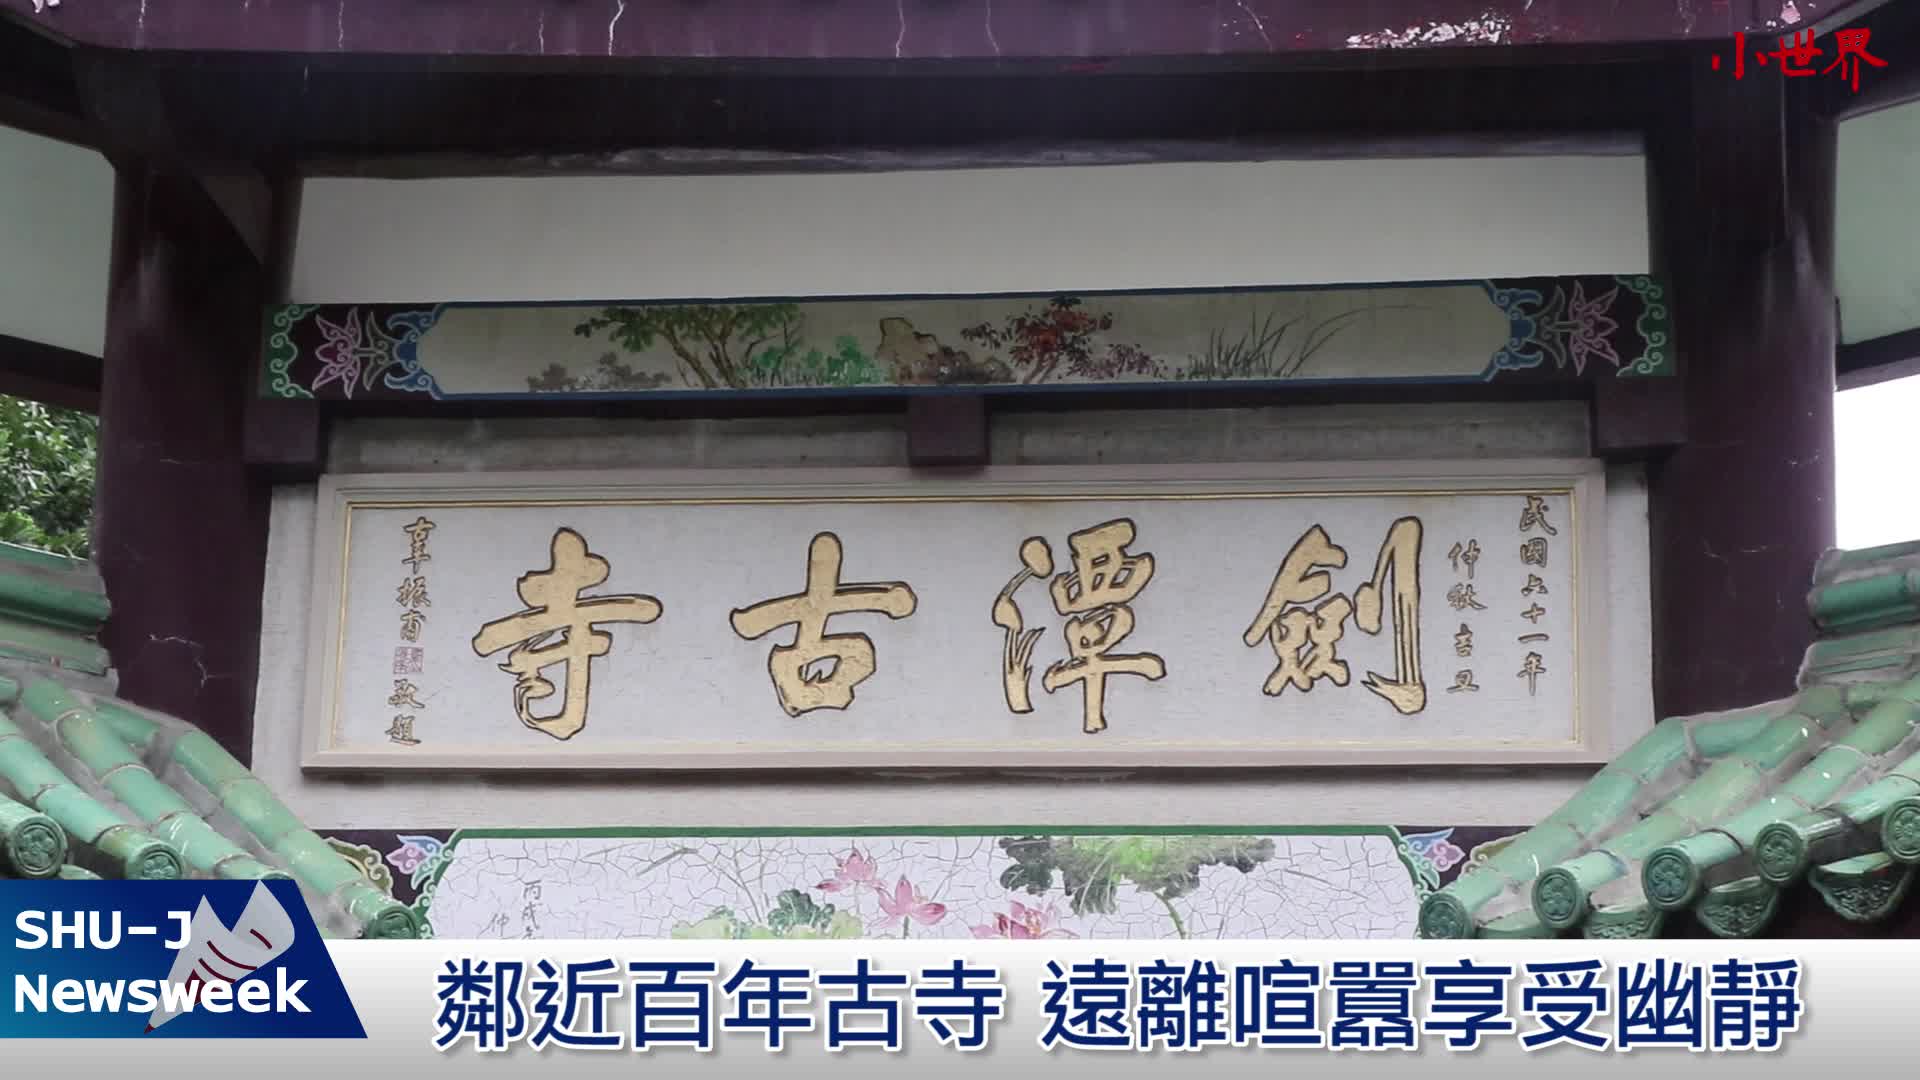 小世界
民國六十一年
仲秋吉旦
劍潭古寺
辜振甫
敬題
丙戌
仲
SHU-J
Newsweek
鄰近百年古寺 遠離喧囂享受幽靜